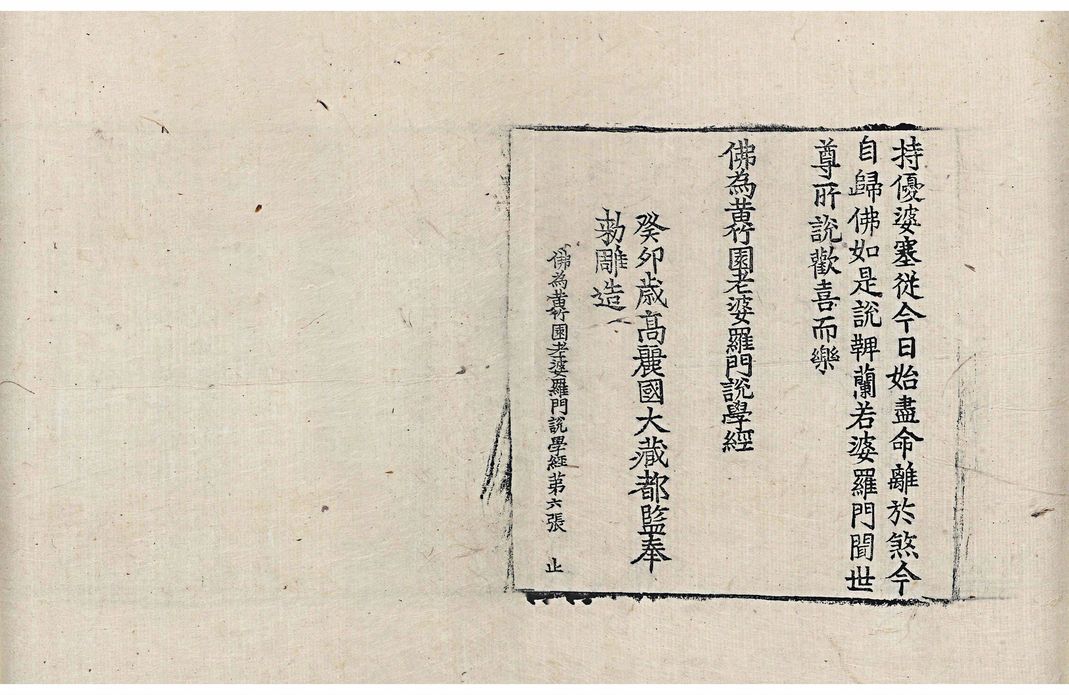 持優婆塞從今日始盡命離於煞今
自歸佛如是說鞞蘭若婆羅門聞世
尊所說歡喜而樂
佛為黃竹園老婆羅門說學經
癸卯歲高麗國大藏都監奉
勅雕造
佛為黃竹園老婆羅門說學經第六張 止